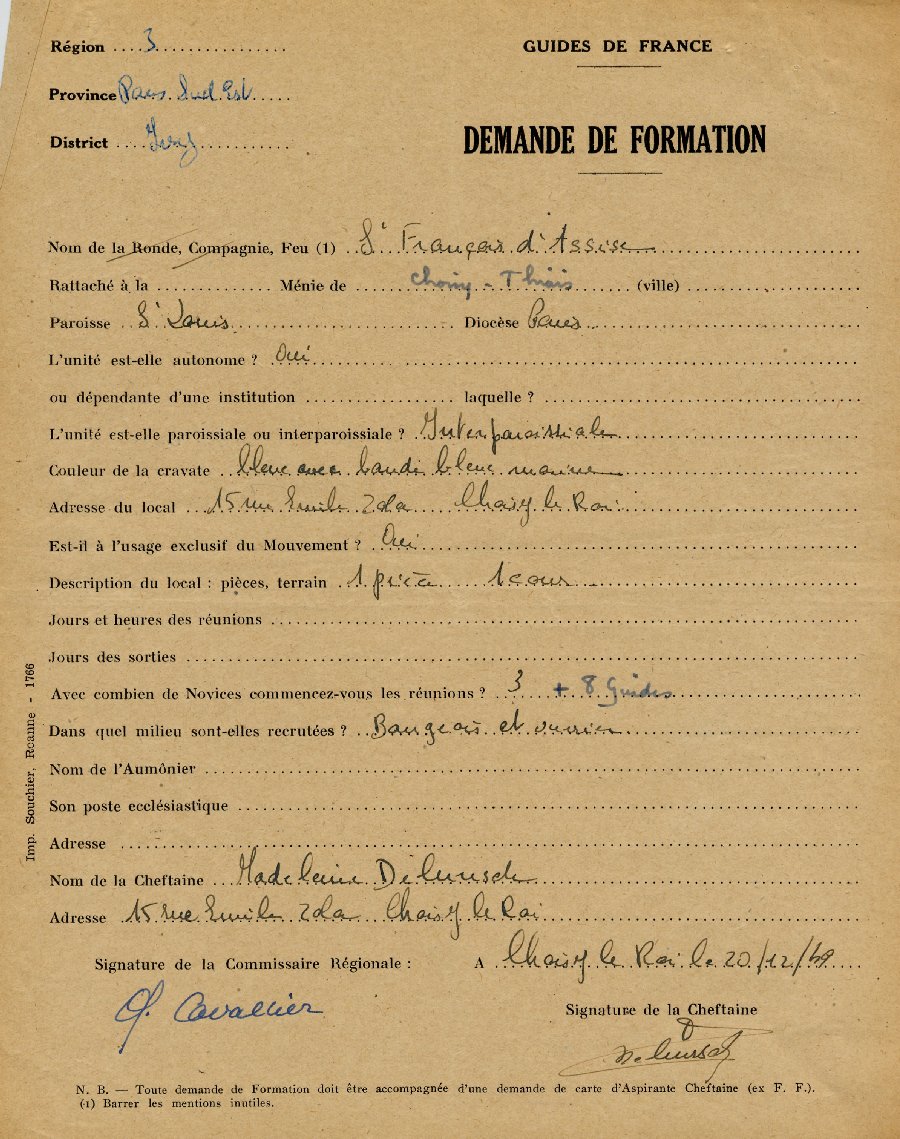 Région .... 3 ................
GUIDES DE FRANCE
Province Paris Sud Est .....
DEMANDE DE FORMATION
District .... Ivry ............
Nom de la Ronde, Compagnie, Feu (1) .. St François d'Assise ....................
Rattaché à la .............. Ménie de ...... Choisy - Thiais ....... (ville) .....................
Paroisse .. St Louis .......................... Diocèse Paris ..........................
L'unité est-elle autonome ? Oui ..........................
ou dépendante d'une institution .................. laquelle ? ..........................
L'unité est-elle paroissiale ou interparoissiale ? Interparoissiale ..........................
Couleur de la cravate .. bleue avec bande bleue marine ..........................
Adresse du local ... 15 rue Emile Zola Choisy le Roi ..........................
Est-il à l'usage exclusif du Mouvement ? Oui ..........................
Description du local : pièces, terrain .. 1 pièce 1 cour ..........................
Jours et heures des réunions ..........................
Jours des sorties ..........................
Avec combien de Novices commencez-vous les réunions ? .. 3 + 8 Guides ..........................
Dans quel milieu sont-elles recrutées ? .. Bourgeois et ouvrier ..........................
Nom de l'Aumônier ..........................
Son poste ecclésiastique ..........................
Adresse ..........................
Nom de la Cheftaine ... Madeleine ..........................
Adresse 15 rue Emile Zola Choisy le Roi ..........................
Signature de la Commissaire Régionale :
A .. Choisy le Roi le 20/12/49 ....
Cavallier
Signature de la Cheftaine
N. B. — Toute demande de Formation doit être accompagnée d'une demande de carte d'Aspirante Cheftaine (ex F. F.).
(1) Barrer les mentions inutiles.
Imp. Souchier, Roanne - 1766